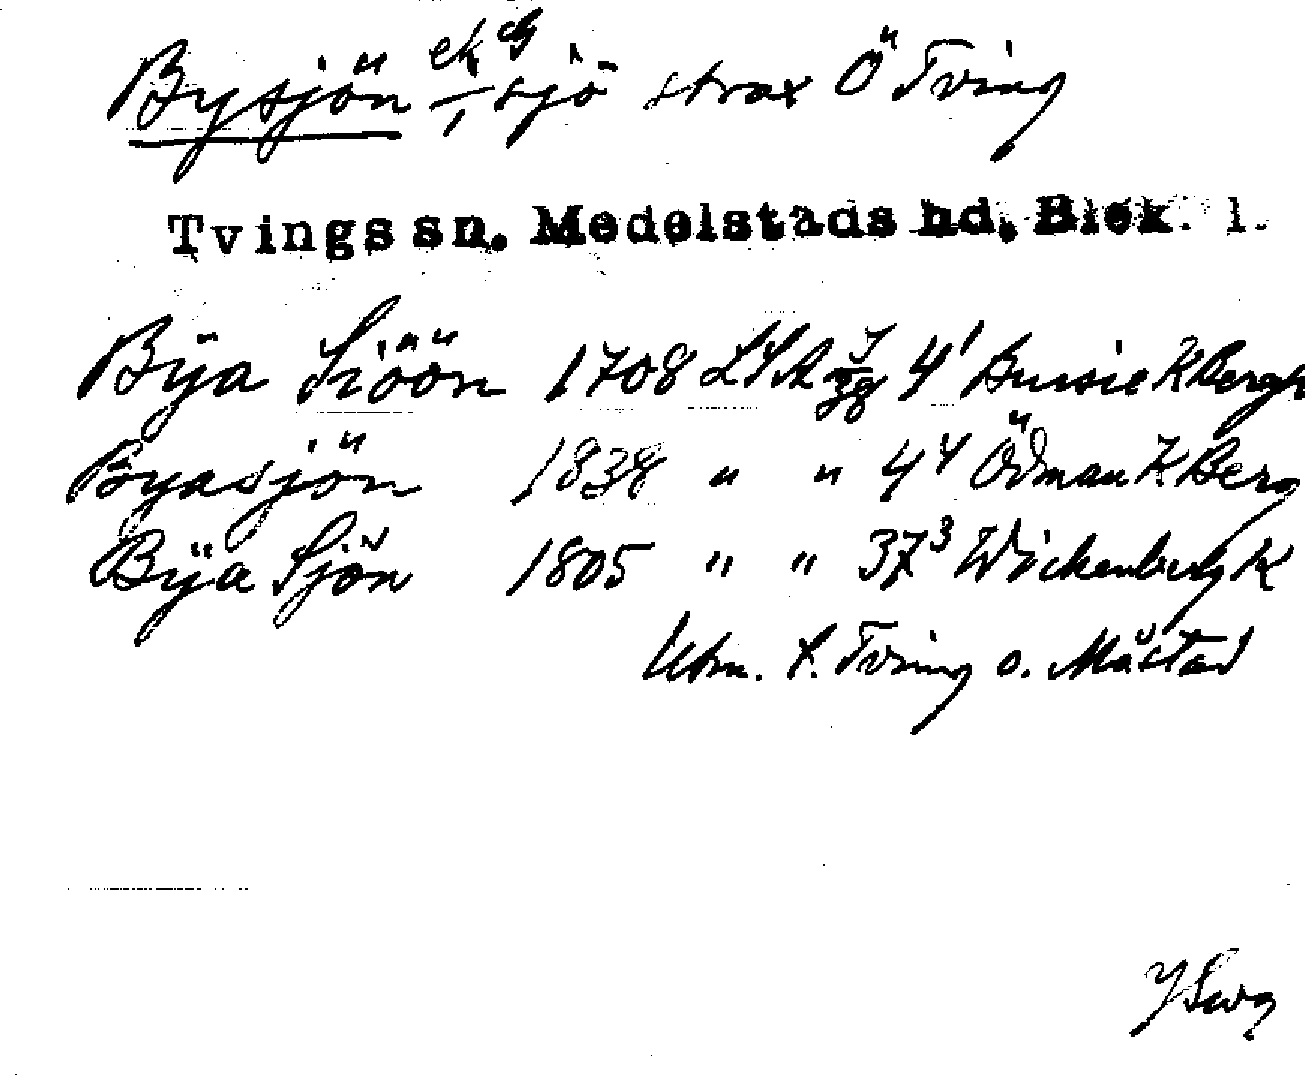 Bysjön sjö strax Ö Tving
Tvings sn. Medelstads hd, Blek. l.
Bÿa Siöön 1708 LSA 4¹ Bussie K Bergh
Byasjön 1838 " " 4⁴ Ödman K Berg
Bÿa Sjön 1805 " " 37³ Wickenberg K
Utm. t. Tving o. Måstad